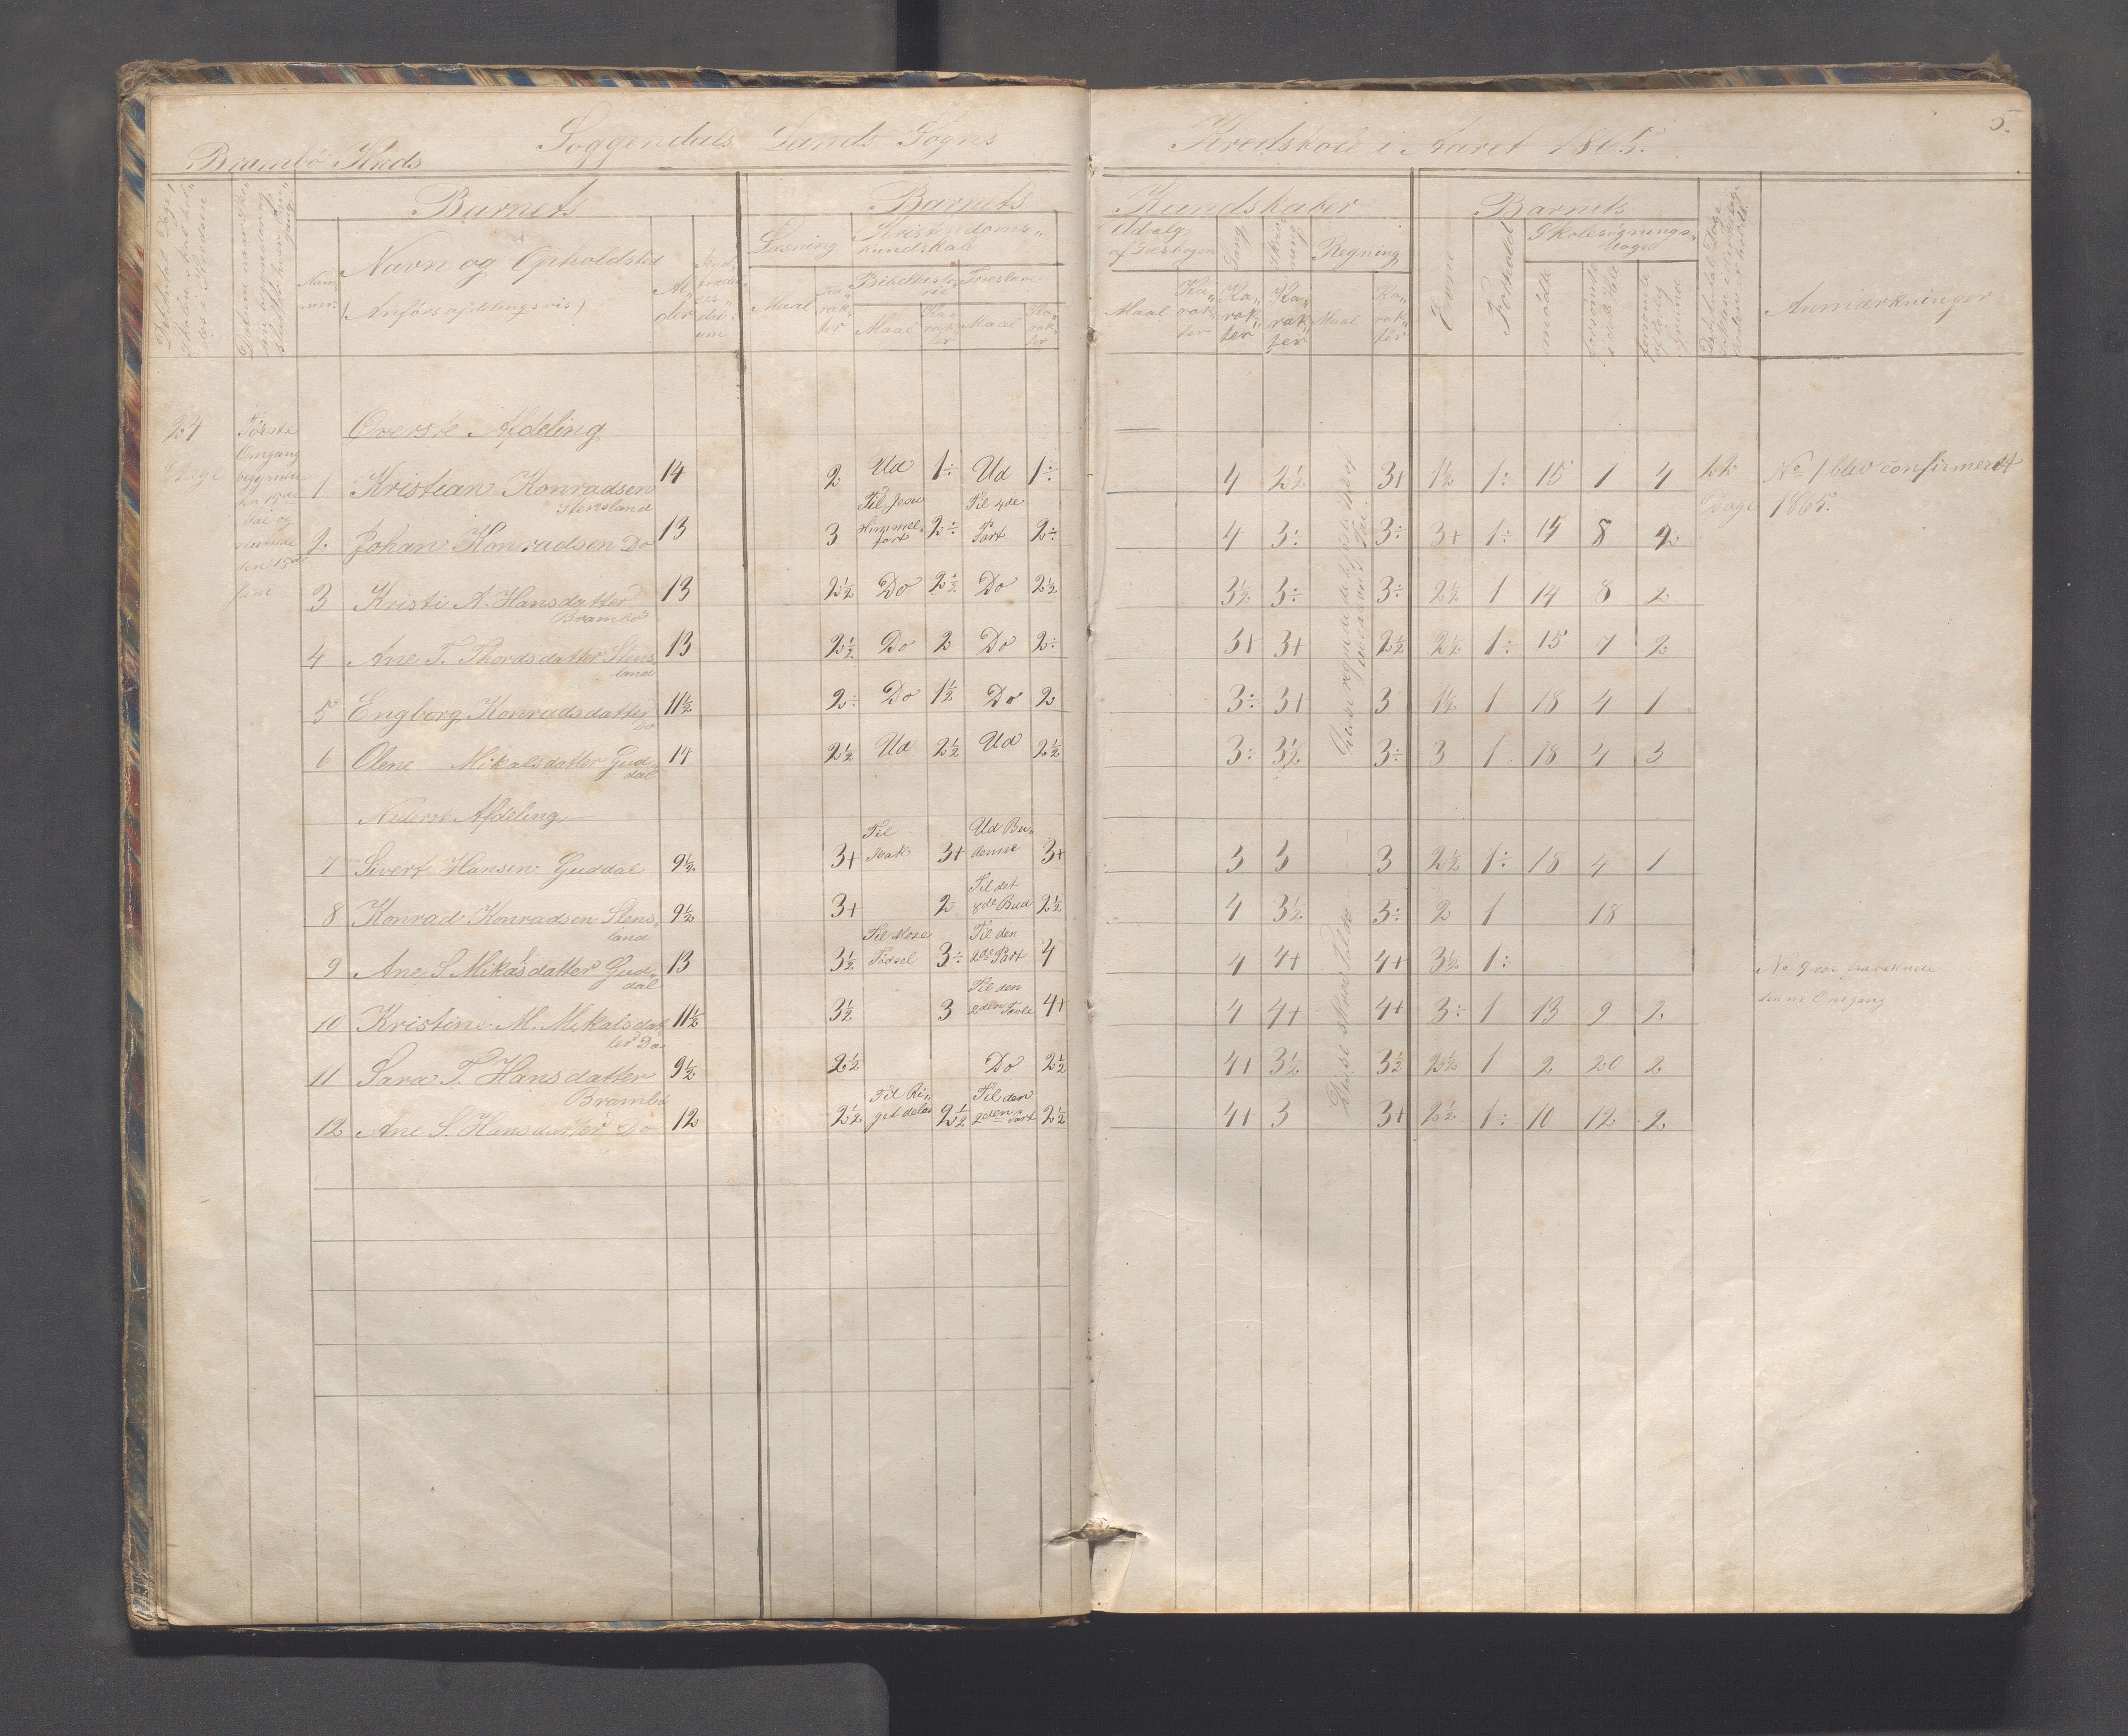 5.
Soggendals Lands Sogns Kredskole i Aaret 1865.
Brambø Kreds
Barnets Barnets Kundskaber Barnets
Num-
mer.
Navn og Opholdsted
(Anføres afdelingsvis)
Al-
der
Læsning
Kristendoms-
kundskab
Udvalg
af Læsebogen
Sang
Skriv-
ning
Regning
Evne
Forhold
Skolesøgnings-
dage
Anmærkninger
Maal Ka-
rak-
ter
Bibelhisto-
rie
Troeslære
Maal Maal
Maal Ka-
rak-
ter
Ka-
rak-
ter
Ka-
rak-
ter
Maal Ka-
rak-
ter
mødte
24
Dage
Første
Omgang
begyndte
den 15de
Mai og
sluttede
den 15de
Juni
Øverste Afdeling
1 Kristian Konradsen
Stensland 14 2 Ud 1÷ Ud 1÷ 4 2½ 3+ 1½ 1÷ 15 1 4 22
Dage
No 1 blev confirmeret
1865.
2. Johan Konradsen Do 13 3 Til Jesu
Himmel-
fart 2÷ Til 4de
Part 2÷ 4 3÷ 3÷ 3+ 1÷ 14 8 2
3 Kristi A. Hansdatter
Brambø 13 2½ Do 2½ Do 2½ 3½ 3÷ 3÷ 2½ 1 14 8 2
4 Ane T. Thordsdatter Stens-
land 13 2½ Do 2 Do 2÷ 3+ 3+ 2½ 2½ 1÷ 15 7 2
5 Engborg Konradsdatter
Do 11½ 2÷ Do 1½ Do 2 3÷ 3+ 3 1½ 1 18 4 1
6 Olene Mikalsdatter Gud-
dal 14 2½ Ud 2½ Ud 2½ 3÷ 3½ 3÷ 3 1 18 4 3
Nederste Afdeling
7 Sivert Hansen Guddal 9½ 3+ Til
Isak 3+ Ud Bu-
dene 3+ 3 3 3 2½ 1÷ 18 4 1
8 Konrad Konradsen Stens-
land 9½ 3+ 2 Til det
8de Bud 2½ 4 3½ 3÷ 2 1 18
9 Ane S. Mikalsdatter Gud-
dal 13 3½ Til Mose
Fødsel 3÷ Til den
2de Part 4 4 4+ 4+ 3½ 1÷
No 9 var fraværende
denne Omgang
10 Kristine M. Mikalsdat-
ter Do 11½ 3½ 3 Til den
2den Tavle 4+ 4 4+ 4+ 3÷ 1 13 9 2
11 Sara T. Hansdatter
Brambø 9½ 2½ Do 2½ 4+ 3½ 3½ 2½ 1 2 20 2
12 Ane S. Hansdatter Do 12 2½ 2½ Til den
2den Part 2½ 4+ 3 3+ 2½ 1÷ 10 12 2